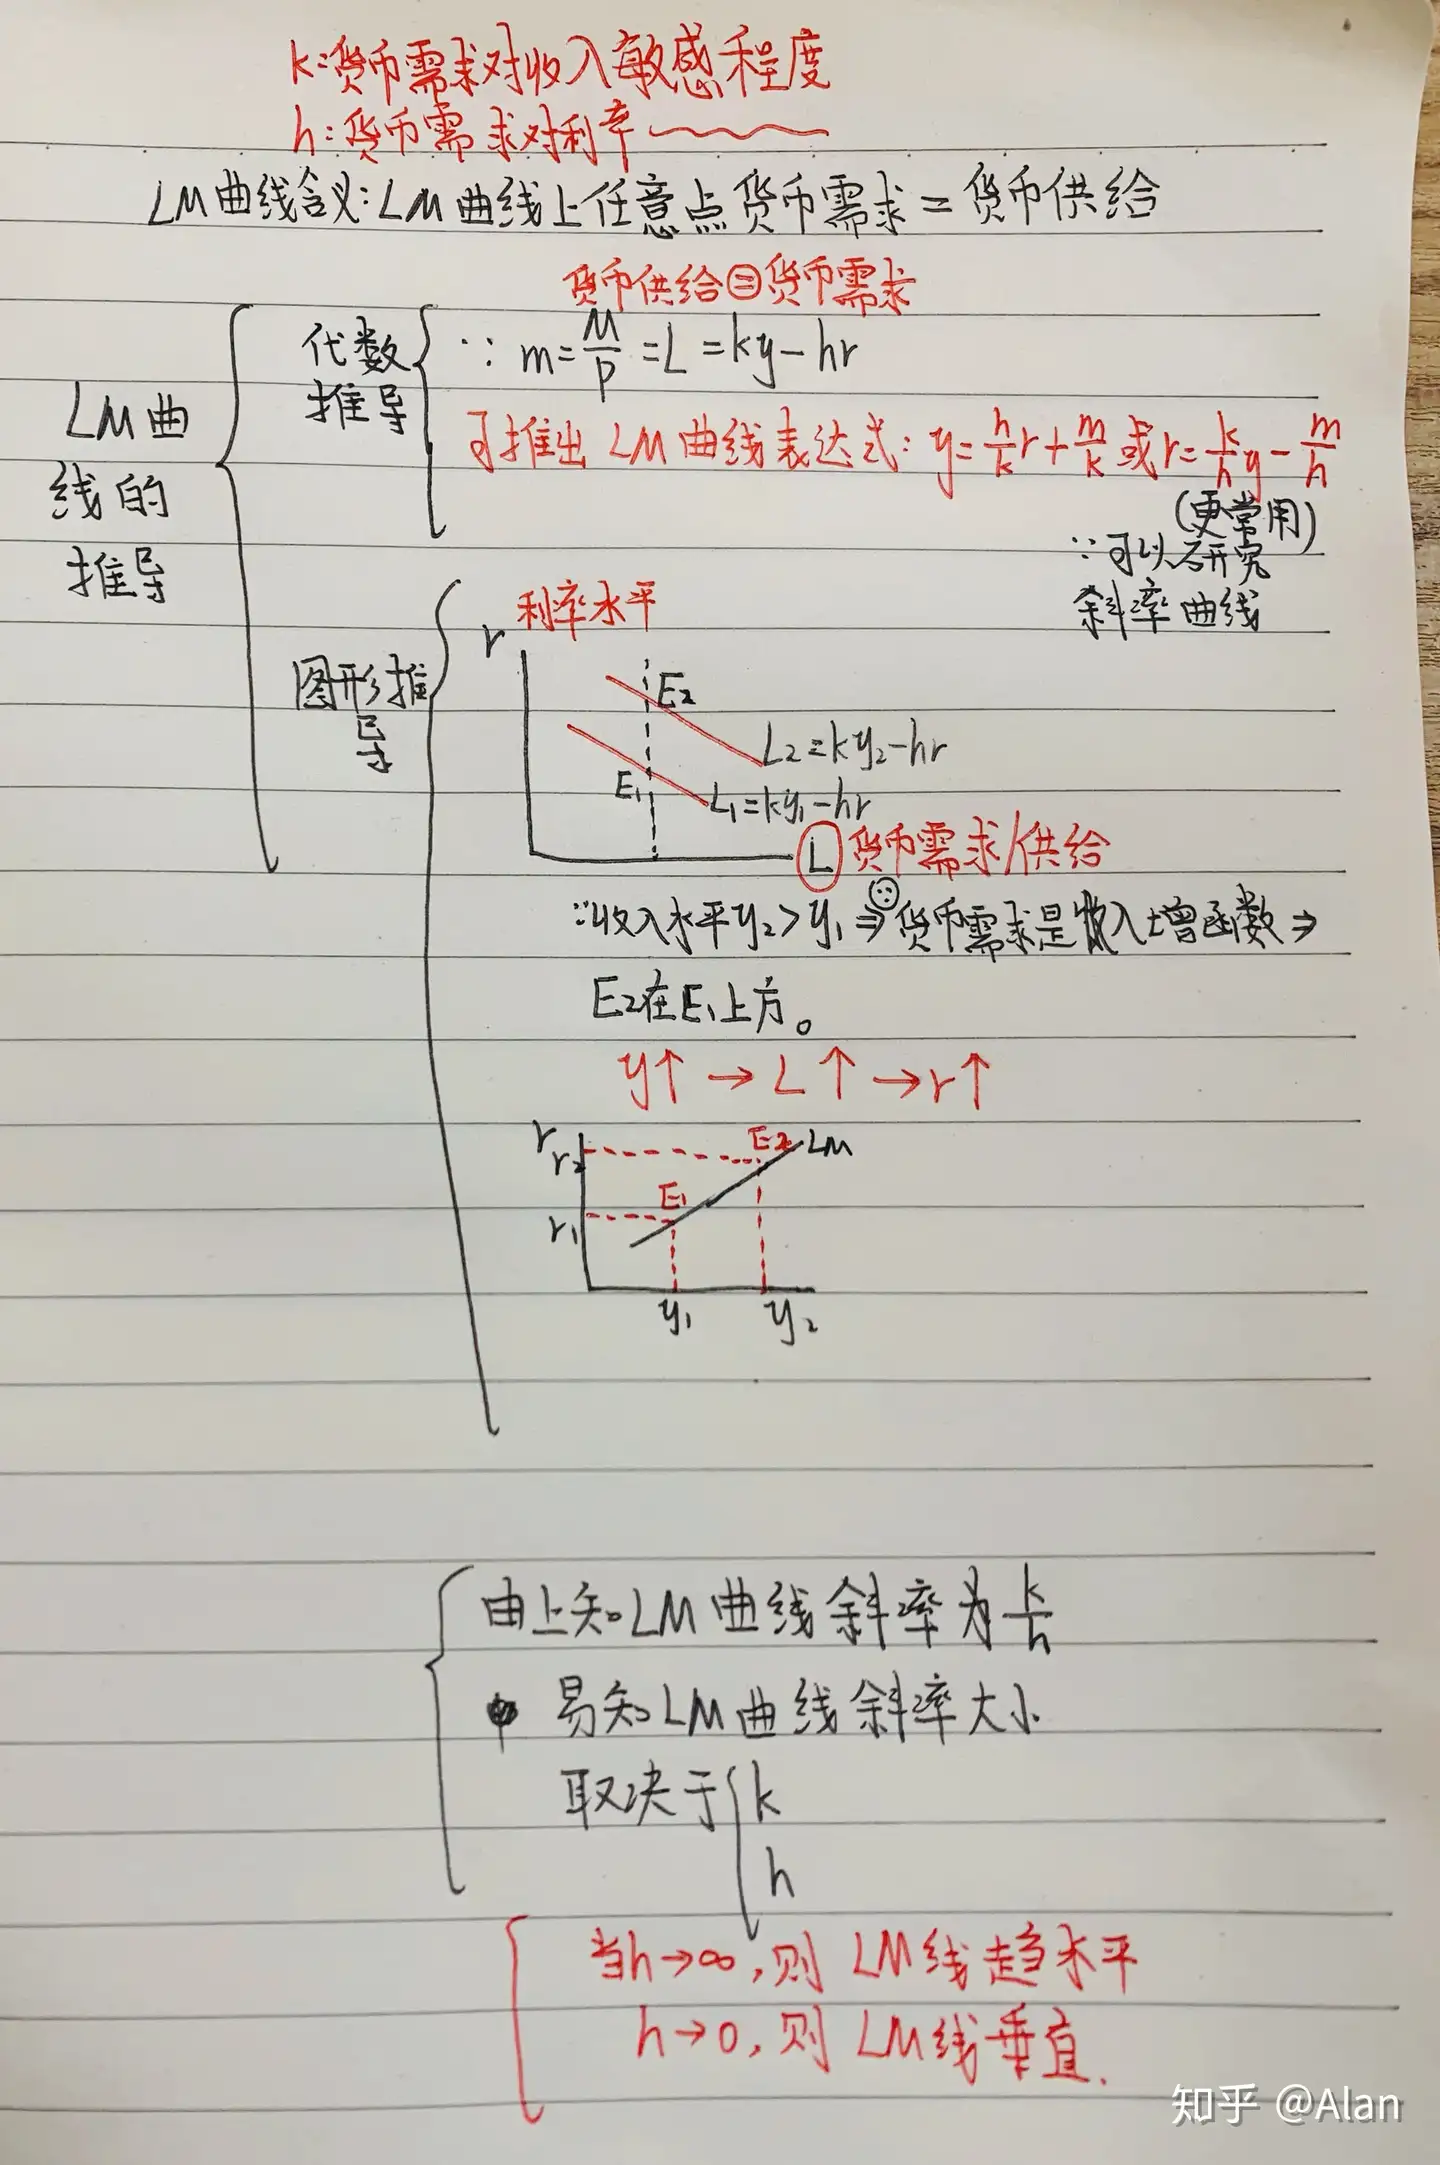 k:货币需求对收入敏感程度
h:货币需求对利率
LM曲线含义:LM曲线上任意点货币需求=货币供给
货币供给=货币需求
LM曲
线的
推导
代数
推导
∵ m=M/P=L=ky-hr
可推出LM曲线表达式:y=h/k r+m/k 或r=k/h y-m/h
(更常用)
∵可以研究
斜率曲线
图形推
导
利率水平
r
E2
L2=ky2-hr
E1
L1=ky1-hr
L 货币需求/供给
∵收入水平y2>y1⇒货币需求是收入增函数⇒
E2在E1上方。
y↑→L↑→r↑
r
r2
E2
LM
r1
E1
y1
y2
由上知LM曲线斜率为k/h
易知LM曲线斜率大小
取决于
k
h
当h→∞,则LM线趋水平
h→0,则LM线垂直.
知乎 @Alan